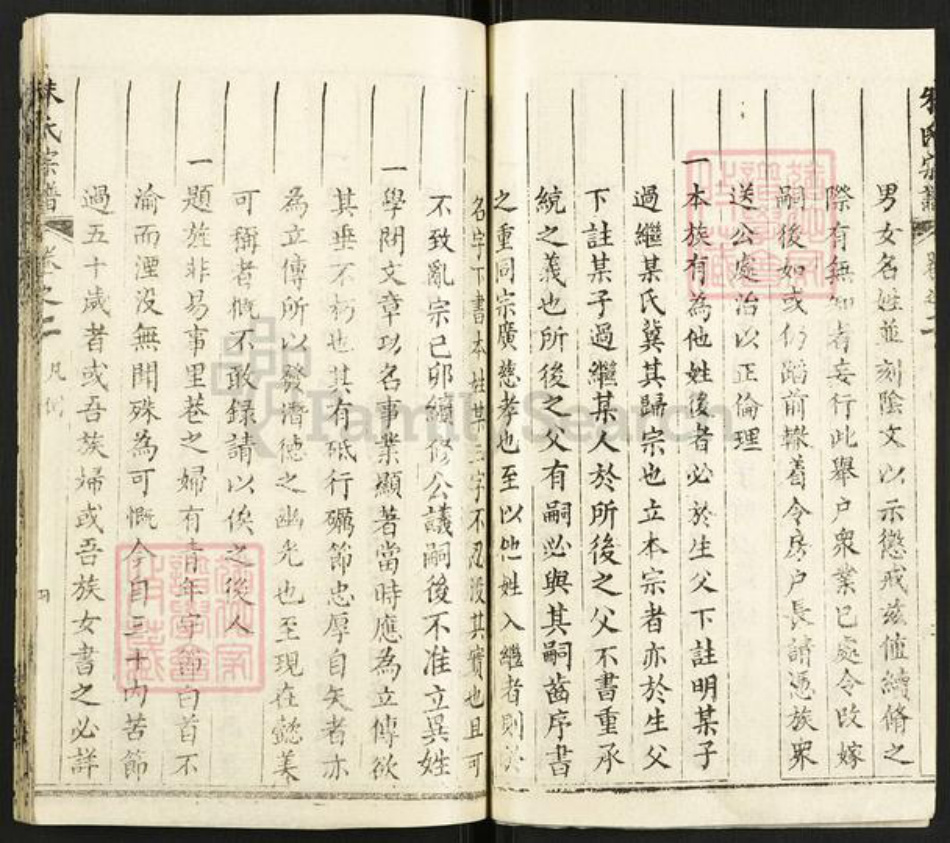 氏宗譜 卷之二
男女名姓並刻陰文以示懲戒茲值續脩之
際有無知者妄行此舉户衆業已處令改嫁
嗣後如或仍蹈前轍着令房户長請憑族衆
送公處治以正倫理
一本族有為他姓後者必於生父下註明某子
過繼某氏冀其歸宗也立本宗者亦於生父
下註某子過繼某人於所後之父不書重承
統之義也所後之父有嗣必與其嗣齒序書
之重同宗廣慈孝也至以他姓入繼者則於
名字下書本姓某三字不忍没其實也且可
不致亂宗己卯續修公議嗣後不准立異姓
一學問文章功名事業顯著當時應為立傳欲
其垂不朽也其有砥行礪節忠厚自矢者亦
為立傳所以發潛德之幽光也至現在懿美
可稱者概不敢録請以俟之後人
一題旌非易事里巷之婦有青年守節白首不
渝而湮没無聞殊為可慨今自三十内苦節
過五十歲者或吾族婦或吾族女書之必詳
朱氏宗譜 卷之二 凡例
FamilySearch